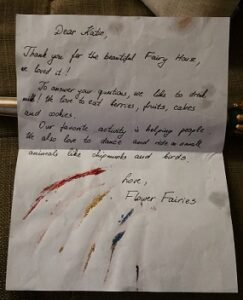 Dear Katie,
Thank you for the beautiful Fairy House,
we loved it!!
To answer your questions, we like to drink
milk! We love to eat berries, fruits, cakes
and cookies.
Our favorite activity is helping people.
We also love to dance and ride on small
animals like chipmunks and birds.
Love,
Flower Fairies